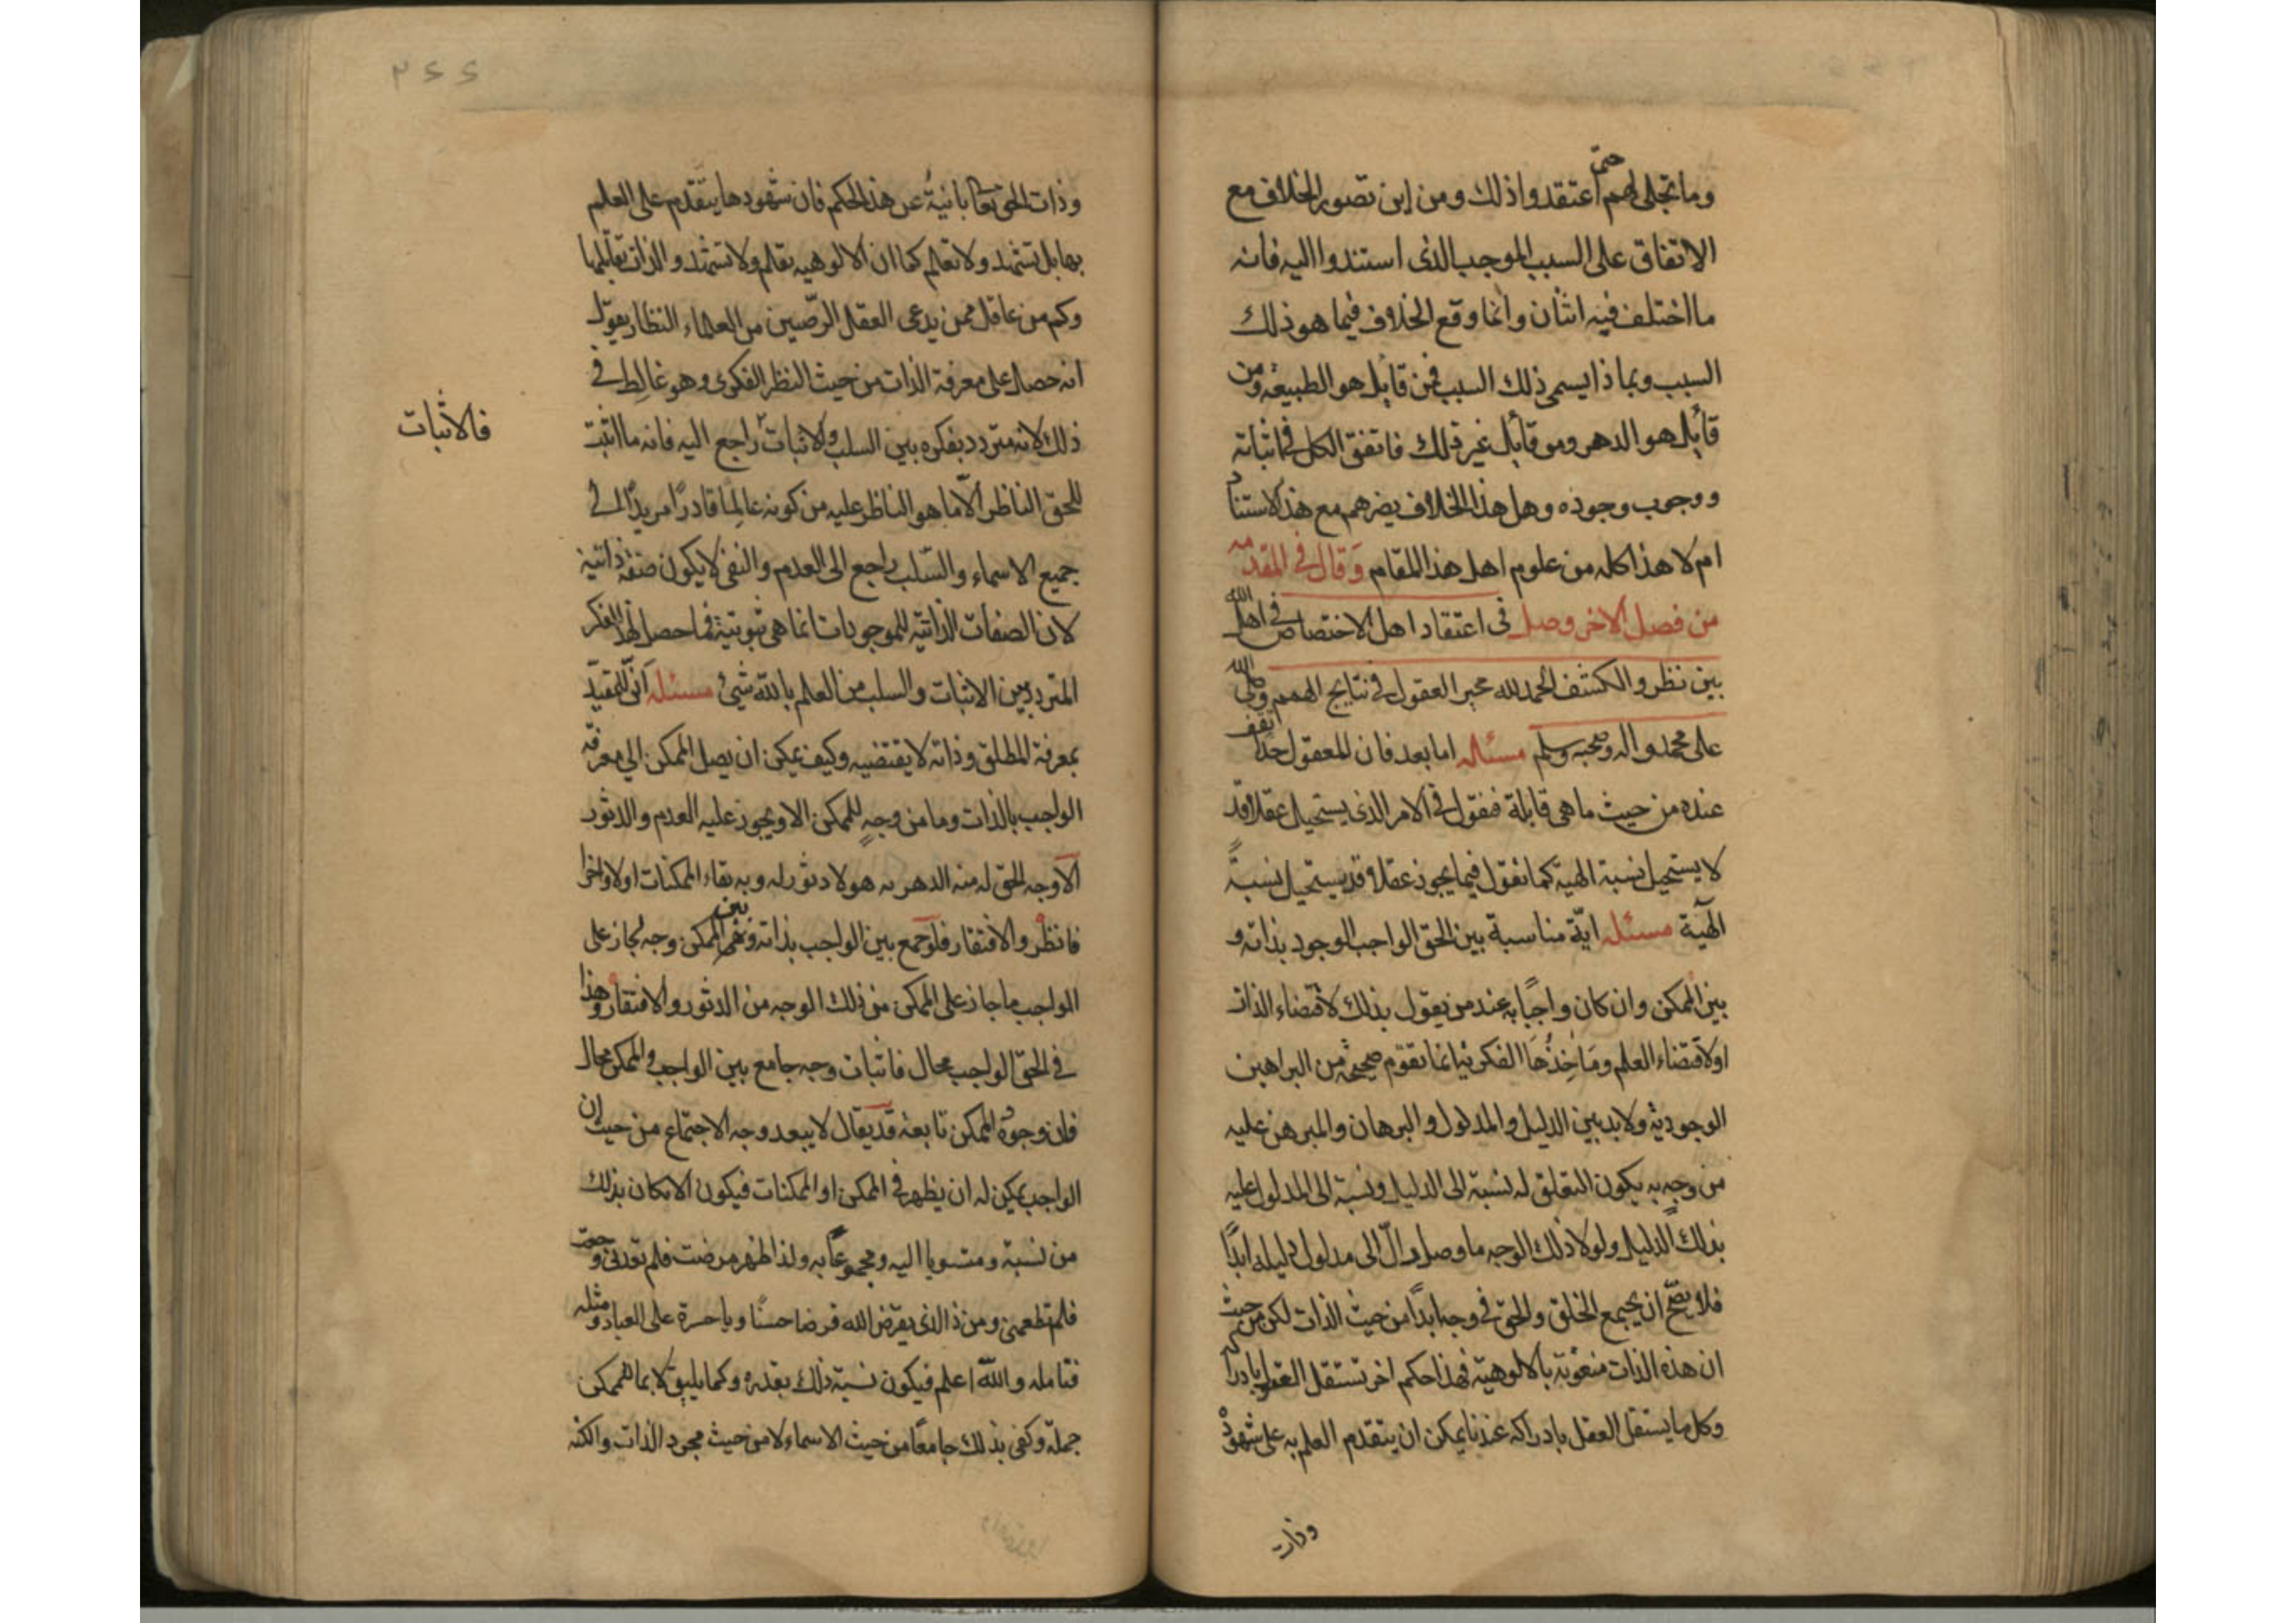 وما تجلى لهم حتى اعتقدوا ذلك ومن اين تصور الخلاف مع
الاتفاق على السبب الموجب الذى استندوا اليه فانه
ما اختلف فيه اثنان وانما وقع الخلاف فيما هو ذلك
السبب وبماذا يسمى ذلك السبب فمن قائل هو الطبيعة ومن
قائل هو الدهر ومن قائل غير ذلك فاتفق الكل فى اثباته
ووجوب وجوده وهل هذا الخلاف يضرهم مع هذا الاستناد
ام لا هذا كله من علوم اهل هذا المقام وقال فى المقدمه
من فصل الاخر وصل فى اعتقاد اهل الاختصاص فى اهل الله
بين نظر والكشف الحمد لله محير العقول فى نتايج الهمم وصلى الله
على محمد واله وصحبه وسلم مسئله اما بعد فان للعقول حدا تقف
عنده من حيث ما هى قابلة فنقول فى الامر الذى يستحيل عقلا قد
لا يستحيل نسبة الهية كما نقول فيما يجوز عقلا قد يستحيل نسبةً
الهية مسئله ايّة مناسبة بين الحق الواجب الوجود بذاته و
بين الممكن وان كان واجبًا به عند من يقول بذلك لاقتضاء الذات
اولاقتضاء العلم ومَاخِذُهَا الفكرية انما تقوم صحيحة من البراهين
الوجودية ولا بد بين الدليل والمدلول والبرهان والمبرهن عليه
من وجه به يكون التعلق له نسبة الى الدليل ونسبة الى المدلول عليه
بذلك الدليل ولولا ذلك الوجه ما وصل دالّ الى مدلول دليله ابدًا
فلا يصحّ ان يجمع الخلق والحق فى وجه ابدًا من حيث الذات لكن من حيث
ان هذه الذات منعوتة بالالوهية فهذا حكم اخر تستقل العقول بادراكه
وكل ما يستقل العقل بادراكه عندنا يمكن ان يتقدم العلم به على شهوده
وذات
٢٥٥
وذات الحق تعا بانيةٌ عن هذا الحكم فان شهودها يتقدم على العلم
بها بل تشهد ولا تعلم كما ان الالوهيه تعلم ولا تشهد والذات تقابلها
وكم من عاقل ممن يدعى العقل الرّصين من العلماء النظار يقول
انه حصل على معرفة الذات من حيث النظر الفكرى وهو غالِط فى
ذلك لانه متردد بفكره بين السلب والاثبات راجع اليه فانه ما اثبت
فالاثبات
للحق الناظر الّا ما هو الناظر عليه من كونه عالِمًا قادرًا مريدًا الى
جميع الاسماء والسّلب راجع الى العدم والنفى لا يكون صفة ذاتية
لان الصفات الذاتيه للموجودات انما هى ثبوتية فما حصل لهذا الفكر
المتردد بين الاثبات والسلب من العلم بالله شئ مسئله انّى للمقيّد
بمعرفة المطلق وذاته لا يقتضيه وكيف يمكن ان يصل الممكن الى معرفة
الواجب بالذات وما من وجهٍ للممكن الا ويجوز عليه العدم والدثور
الاوجه الحق له منه الدهر به هو لا دثور له وبه بقاء الممكنات اولا واخرا
فانظر والافتقار فلو جمع بين الواجب بذاته وبين الممكن وجه لجاز على
الواجب ما جاز على الممكن من ذلك الوجه من الدثور والافتقار وهذا
فى الحق الواجب محال فاثبات وجه جامع بين الواجب والممكن محال
فان وجوه الممكن تابعة قد يقال لا يبعد وجه الاجتماع من حيث ان
الواجب يمكن له ان يظهر فى الممكن او الممكنات فيكون الامكان بذلك
من نسبة ومنسوبا اليه ومجموعًا به ولذا ظهر مرضت فلم تعدنى وجعت
فلم تطعمنى ومن ذا الذى يقرض الله قرضا حسنًا ويا حسرة على العباد ومثله
فتامله والله اعلم فيكون نسبة ذلك بقدره وكما يليق لا بما للممكن
جملة وكفى بذلك جامعًا من حيث الاسماء لا من حيث مجرد الذات والكنه